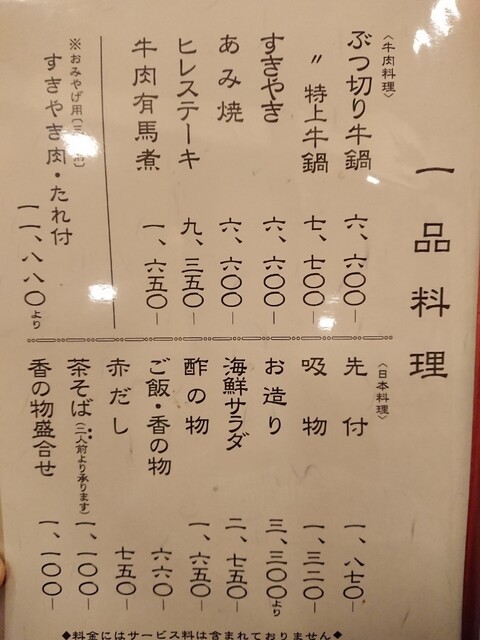 一品料理
〈牛肉料理〉
ぶつ切り牛鍋 六、六〇〇―
〃 特上牛鍋 七、七〇〇―
すきやき 六、六〇〇―
あみ焼 六、六〇〇―
ヒレステーキ 九、三五〇―
牛肉有馬煮 一、六五〇―
※おみやげ用
すきやき肉・たれ付
一一、八八〇より
〈日本料理〉
先付 一、八七〇―
吸物 一、三二〇―
お造り 三、三〇〇より
海鮮サラダ 二、七五〇―
酢の物 一、六五〇―
ご飯・香の物 六六〇―
赤だし 七五〇―
茶そば(二人前より承ります) 一、一〇〇―
香の物盛合せ 一、一〇〇―
◆料金にはサービス料は含まれておりません◆